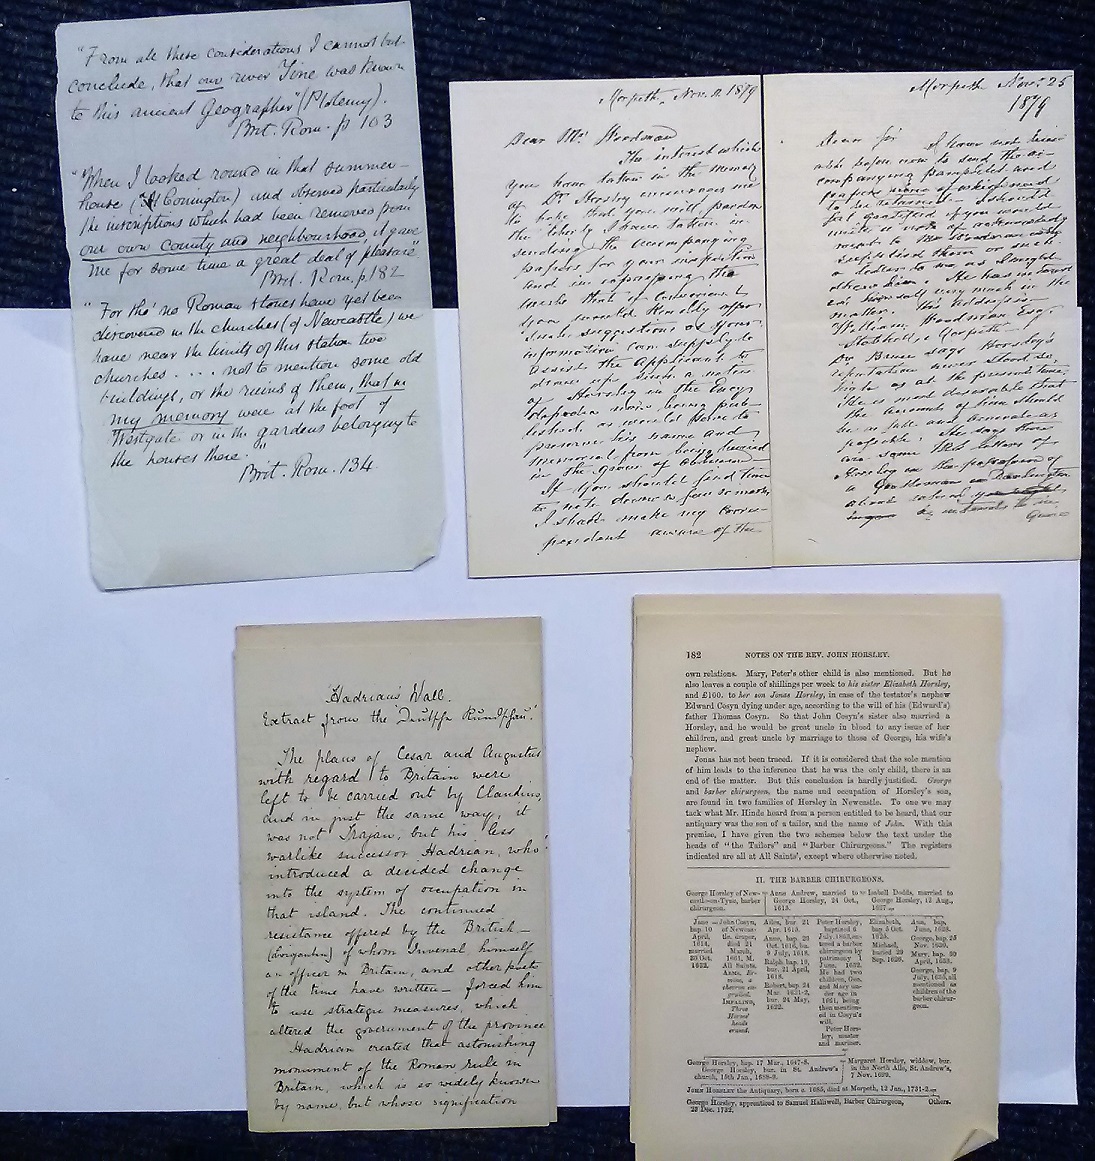 "From all these considerations I cannot but
conclude, that our river Tine was known
to this ancient Geographer" (Ptolemy).
Brit. Rom. p 103
"When I looked round in that summer-
house (at Conington) and observed particularly
the inscriptions which had been removed from
our own County and neighbourhood it gave
me for some time a great deal of pleasure"
Brit. Rom. p. 182
"For tho' no Roman stones have yet been
discovered in the churches (of Newcastle) we
have near the limits of this station two
churches . . . . not to mention some old
buildings, or the ruins of them, that in
my memory were at the foot of
Westgate or in the gardens belonging to
the houses there."
Brit. Rom. 134.
Morpeth, Nov. 11. 1879
Dear Mr Woodman
The interest which
you have taken in the memory
of Dr Horsley encourages me
to hope that you will pardon
the liberty I have taken in
sending the accompanying
papers for your inspection
and in expressing the
wish that if convenient
you would kindly offer
such suggestions as your
information can supply to
assist the Applicant to
draw up such a notice
of Horsley in the Ency-
clopædia now being pub-
lished as would serve to
preserve his name and
memorial from being buried
in the grave of oblivion
If you should find time
to note down a few remarks
I shall make my corres-
pondent aware of the
Morpeth Nov. 25
1879
Dear Sir I have not been
able before now to send the ac-
companying pamphlets and
papers none of which need
to be returned. I should
feel gratified if you would
make a note of acknowledg-
ment to Mr Woodman
supplied them or such
a letter to me as I might
show him. He has interest-
ed himself very much in the
matter. His address is
William Woodman Esq.
Stobhill, Morpeth.
Dr Bruce says Horsley's
reputation never stood so
high as at the present time.
It is most desirable that
the account of him should
be as full and accurate as
possible. He says there
are some MSS letters of
Horsley in the possession of
a Gentleman in Darlington
about
Hadrian's Wall.
Extract from the
The plans of Cesar and Augustus
with regard to Britain were
left to be carried out by Claudius,
and in just the same way, it
was not Trajan, but his less
warlike successor Hadrian, who
introduced a decided change
into the system of occupation in
that island. The continued
resistance offered by the British—
(Brigantes) of whom Juvenal, himself
an officer in Britain, and other poets
of the time have written — forced him
to use strategic measures, which
altered the government of the province
Hadrian created that astonishing
monument of the Roman rule in
Britain, which is so widely known
by name, but whose signification
182 NOTES ON THE REV. JOHN HORSLEY.
own relations. Mary, Peter's other child is also mentioned. But he
also leaves a couple of shillings per week to his sister Elizabeth Horsley,
and £100. to her son Jonas Horsley, in case of the testator's nephew
Edward Cosyn dying under age, according to the will of his (Edward's)
father Thomas Cosyn. So that John Cosyn's sister also married a
Horsley, and he would be great uncle in blood to any issue of her
children, and great uncle by marriage to those of George, his wife's
nephew.
Jonas has not been traced. If it is considered that the sole mention
of him leads to the inference that he was the only child, there is an
end of the matter. But this conclusion is hardly justified. George
and barber chirurgeon, the name and occupation of Horsley's son,
are found in two families of Horsley in Newcastle. To one we may
tack what Mr. Hinde heard from a person entitled to be heard, that our
antiquary was the son of a tailor, and the name of John. With this
premise, I have given the two schemes below the text under the
heads of "the Tailors" and "Barber Chirurgeons." The registers
indicated are all at All Saints', except where otherwise noted.
II. THE BARBER CHIRURGEONS.
George Horsley of New-
castle-on-Tyne, barber
chirurgeon.
Anne Andrew, married to
George Horsley, 24 Oct.,
1613.
Isabell Dodds, married to
George Horsley, 12 Aug.,
1627.
Jane
bap. 10
April,
1614,
married
20 Oct.
1632.
John Cosyn,
of Newcas-
tle, draper,
died 21
March,
1661, M.
All Saints.
Arms,
a
chevron en-
grailed.
IMPALING,
Three
Horses'
heads
erased.
Alice, bur. 21
Apr. 1619.
Anne, bap. 29
Oct. 1616, bu.
9 July, 1618.
Ralph, bap. 19,
bur. 21 April,
1618.
Robert, bap. 24
Mar. 1621-2,
bur. 24 May,
1622.
Peter Horsley,
baptized 6
July,
barber
chirurgeon by
patrimony
June, 1652.
He had two
children, Geo.
and Mary un-
der age in
1661, being
then mention-
ed in Cosyn's
will.
Peter Hors-
ley, master
and mariner.
Elizabeth,
bap. 5 Oct.
1628.
Michael,
buried 29
Sep. 1630.
Ann, bap.
June, 1628.
George, bap. 25
Nov. 1630.
Mary, bap. 30
April, 1633.
George, bap. 9
July, 1635, all
mentioned as
children of the
barber chirur-
geon.
George Horsley, bap. 17 Mar., 1647-8.
George Horsley, bur. in St. Andrew's
church, 15th Jan.,
Margaret Horsley, widdow, bur.
in the North Alle, St. Andrew's,
7 Nov. 1699.
JOHN HORSLEY the Antiquary, born c 1685, died at Morpeth, 12 Jan., 1731-2.
George Horsley, apprenticed to Samuel Halliwell, Barber Chirurgeon,
23 Dec. 1732.
Others.